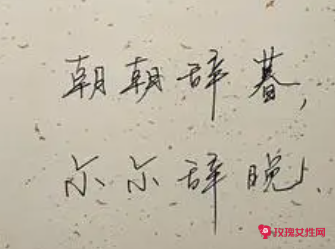 朝朝辞暮,
尔尔辞晚
玫瑰女性网